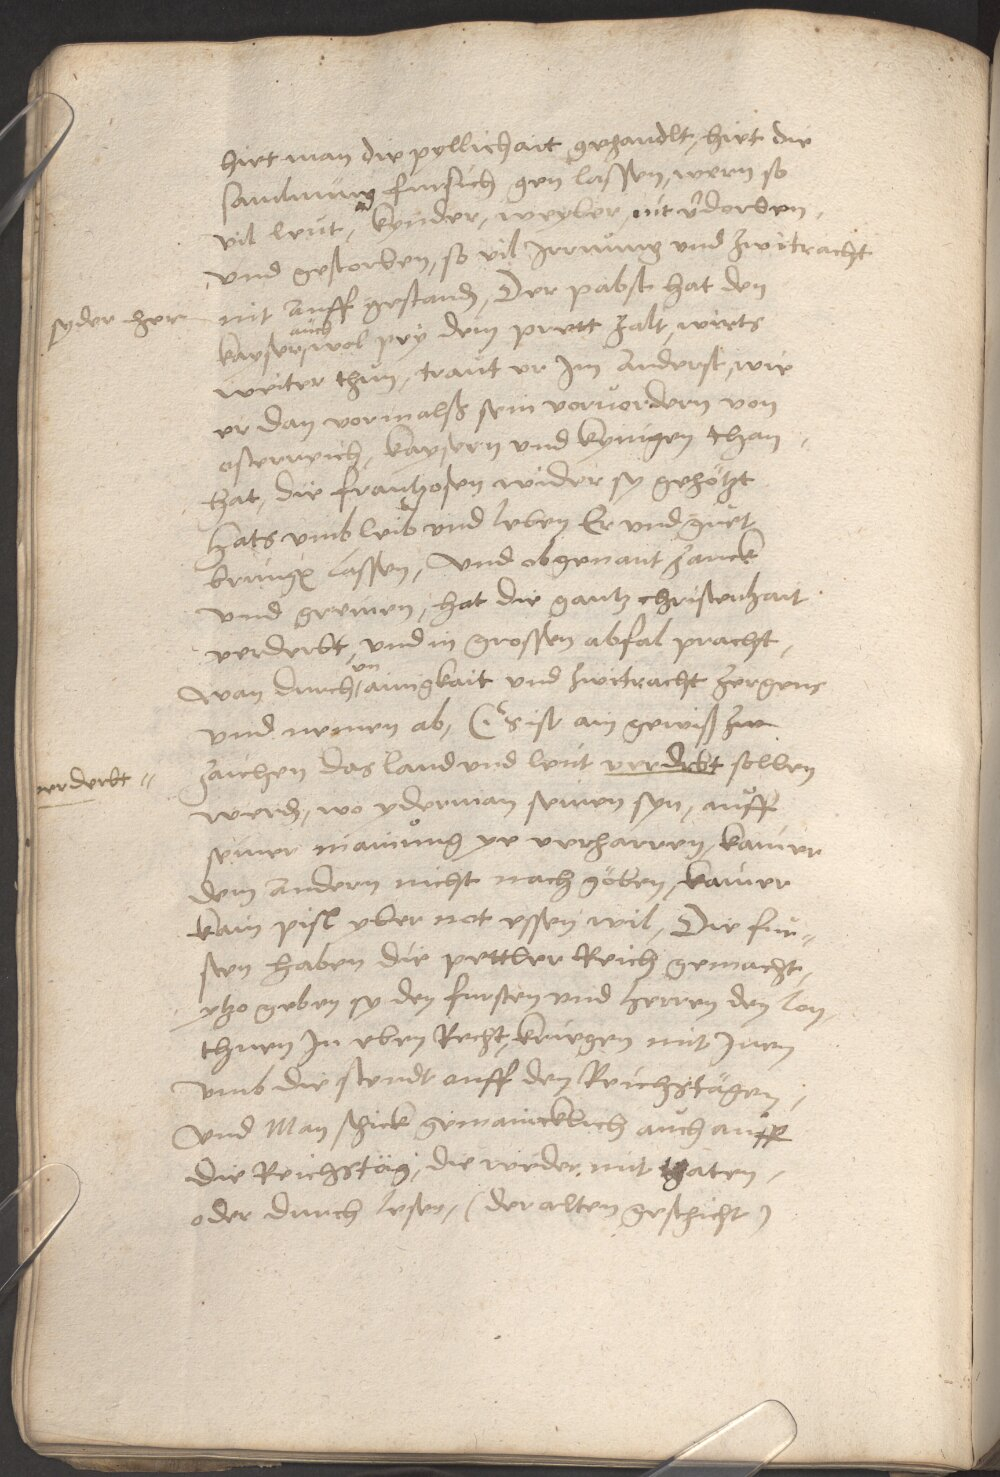 hiet man die pyllichait gehandlt, hiet die
samlung fursich gen lassen, wern so
vil leut, kynder, weyber, nit v̄dorben,
vnd gestorben, so vil Irrung vnd zwitracht
nit auff gestand,, Der pabst hat den
syder her
kayser, auch wol pey dem prett zalt, wirts
weiter thun, traut er Im anderst, wie
er dan vormalß sein voruordern von
osterreich, kaysern vnd kynigen than,
hat, die frantzosen wider sy gehötzt
hats vmb leib vnd leben Er vnd guet
bringen lassen, Vnd obgenant zanck
vnd greinen, hat die gantz christenhait
verderbt, vnd in grossen abfal pracht,
wan durch vn ainigkait vnd zwitracht zergens
vnd nemen ab, (Es ist ain gewiß
zaichen das land vnd leut verderbt sollen
verderbt
werden, wo yderman seinen syn, auff
seiner mainung ye verharren, kainer
dem andern nicht nach göben, kainer
kain pisl vber not essen wil, Die fur-
sten haben die pettler Reich gemacht,
ytzo geben sy den fursten vnd herren den lon,
thuen In eben Recht, kriegen mit Inen
vmb die stendt auff den Reichstägen,
Vnd Man schick gemaincklich auch auff
die Reichstäg, die weder mit thaten,
oder durch lesen, (der alten geschicht)